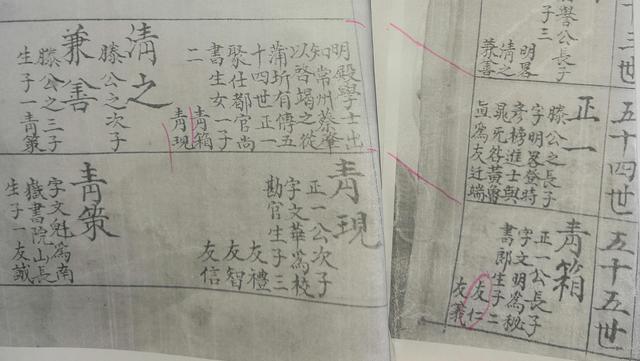 十三世
譽公長子
子三
明畧
清之
兼善
五十四世
正一
滕公之長子
字明畧登時
彥榜進士與
晁死咎黃魯
直爲友迁端
五十五世
青箱
正一公長子
字文明爲秘
書郎生子二
友仁
友義
明殿學士出
知常州蔡肇
以啓竭之從
蒲圻有傳五
十四世正一
聚仕都官尚
書生女一子
二
青箱
青現
清之
滕公之次子
兼善
滕公之三子
生子一青策
青現
正一公次子
字文華爲校
勘官生子三
友禮
友智
友信
青策
字文魁爲南
嶽書院山長
生子一友誠